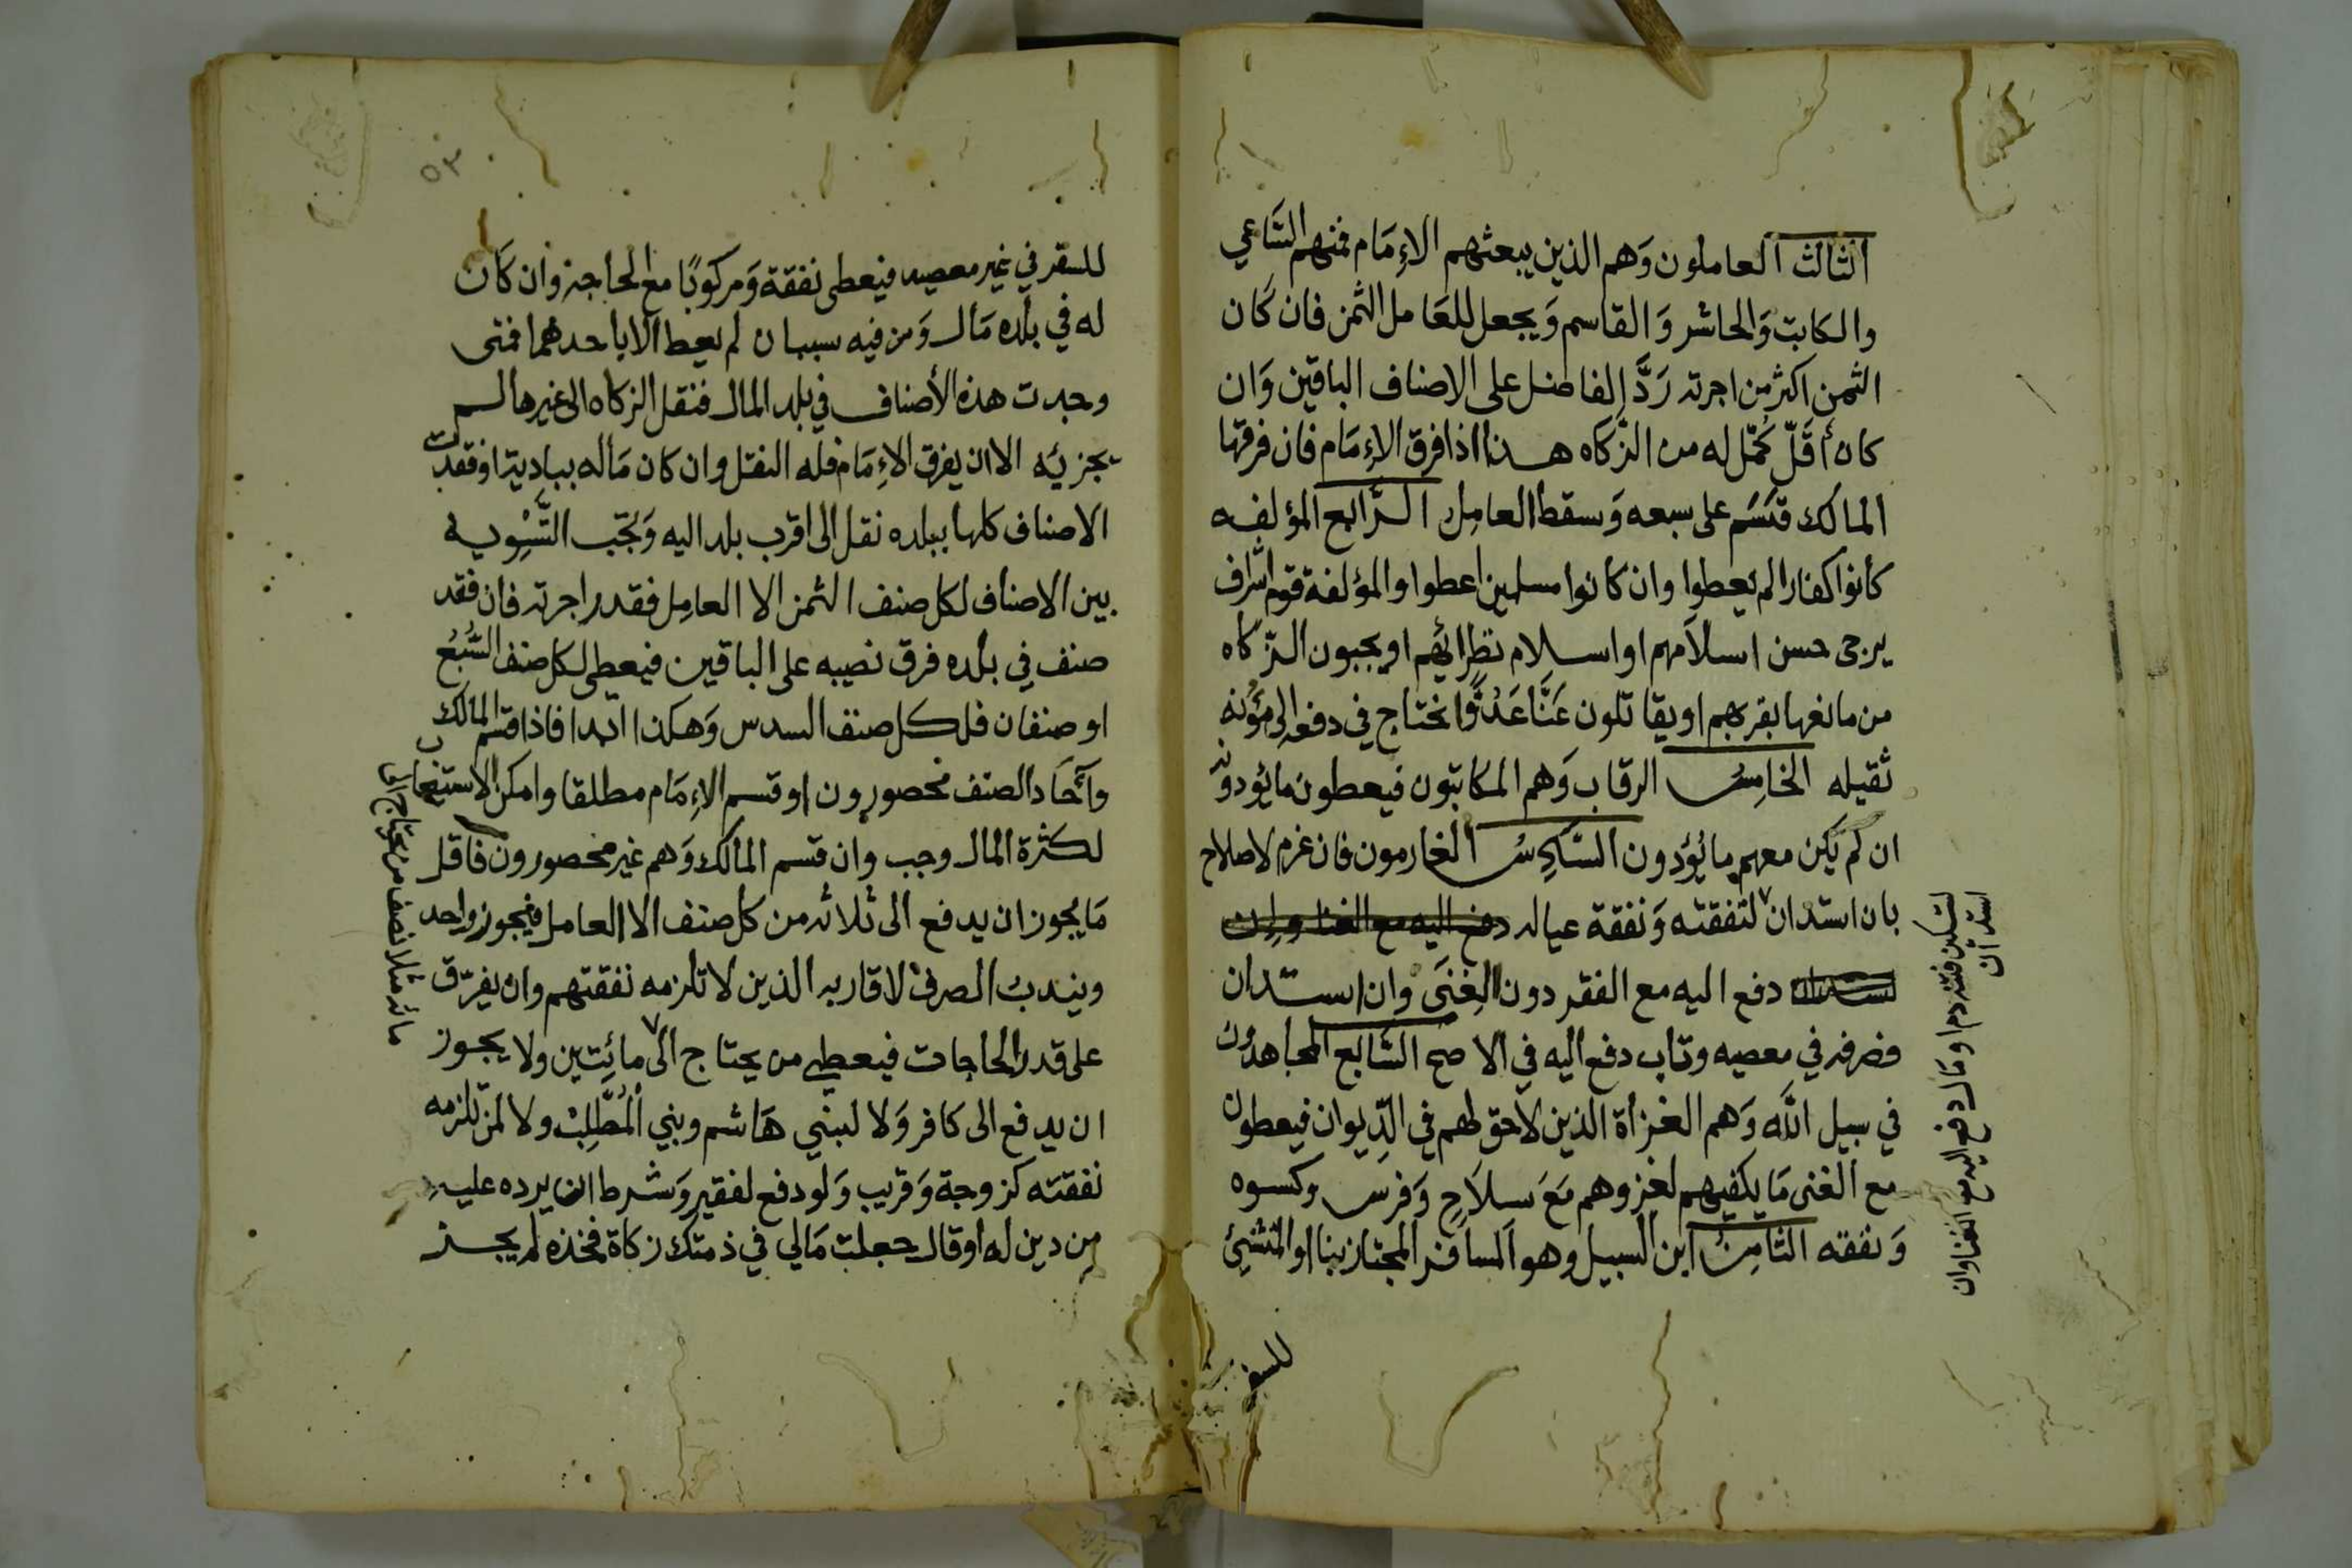 الثالث العاملون وَهم الذين يبعثهم الاِمَام فمنهم السَّاعي
والكاتب وَالحاشر وَالقاسم وَيجعل للعَامل الثمن فان كَان
الثمن اكثر من اجرته رَدَّ الفاضل على الاصناف الباقين وَان
كان أقلّ كمّل له من الزّكاه هذا اذا فرق الاِمَام فان فرقها
المالك قسَم على سبعه وَسقط العامِل الرَّابع المؤلفه
كانوا كفارا لم يعطوا وان كانوا مسلمين اعطوا والمؤلفة قوم اشراف
يرجى حسن اسلامهم او اسلام نظرائهم او يجبون الزّكاه
من مانعها بقربهم او يقاتلون عَنَّا عَدُوًّا نحتاج في دفعه الى مؤنه
ثقيله الخامِسُ الرقاب وَهم المكاتبون فيعطون ما يؤدونه
ان لم يكن معهم ما يُؤدون السَّادِسُ الغارمون فان غرم لاصلاح
بان استدان لنفقته وَنفقة عياله دفع اليه مع الغنا وان
استدان دفع اليه مع الفقر دون الغِنَى وان استدان
فصرفه في معصيه وتاب دفع اليه في الاصح السَّابع المجاهدون
في سبيل الله وَهم الغزاة الذين لا حق لهم في الدّيوان فيعطون
مع الغنى مَا يكفيهم لغزوهم مَعَ سلاَحٍ وَفرس وكسوه
وَنفقه الثامِنُ ابن السبيل وهو المسافر المجتاز بنا او المنشئ
استدان
لتسكين فتنه دم او مَال دفع اليه مع الغنا وان
للسفر
٥٣
للسفر في غير معصيه فيعطى نفقة وَمركوبًا مع الحاجه وان كَان
له في بلده مَال وَمن فيه سببان لم يعط الا باحدهما فمتى
وجدت هذه الأصناف في بلد المال فنقل الزكاه الى غيرها لم
يجزيه الا ان يفرق الاِمَام فله النقل وان كان مَاله ببادية او فقدت
الاصناف كلها ببلده نقل الى اقرب بلد اليه وَتجب التَّسْوِيه
بين الاصناف لكل صنف الثمن الا العامِل فقدر اجرته فان فقد
صنف في بلده فرق نصيبه على الباقين فيعطى لكل صنف السُّبُعُ
او صنفان فلكل صنف السدس وَهكذا ابدا فاذا قسم المالك
وآحَاد الصنف محصورون او قسم الاِمَام مطلقا وامكن الاستيعاب
لكثرة المال وجب وان قسم المالك وَهم غير محصورون فاقل
مَا يجوز ان يدفع الى ثلاثه من كل صنف الا العامل فيجوز واحد
ويندبُ الصرف لاقاربه الذين لا تلزمه نفقتهم وان يفرّق
على قدر الحاجات فيعطي من يحتاج الى مائتين ولا يجوز
ان يدفع الى كافر وَلا لبني هَاشم وبني المُطَّلِبْ ولا لمن تلزمه
نفقته كزوجة وَقريب وَلو دفع لفقير وَشرط ان يرده عليه
من دين له او قال جعلت مَالي في ذمتك زكاة فخذه لم يجز
مائه مثلا نصف من يحتاج الى